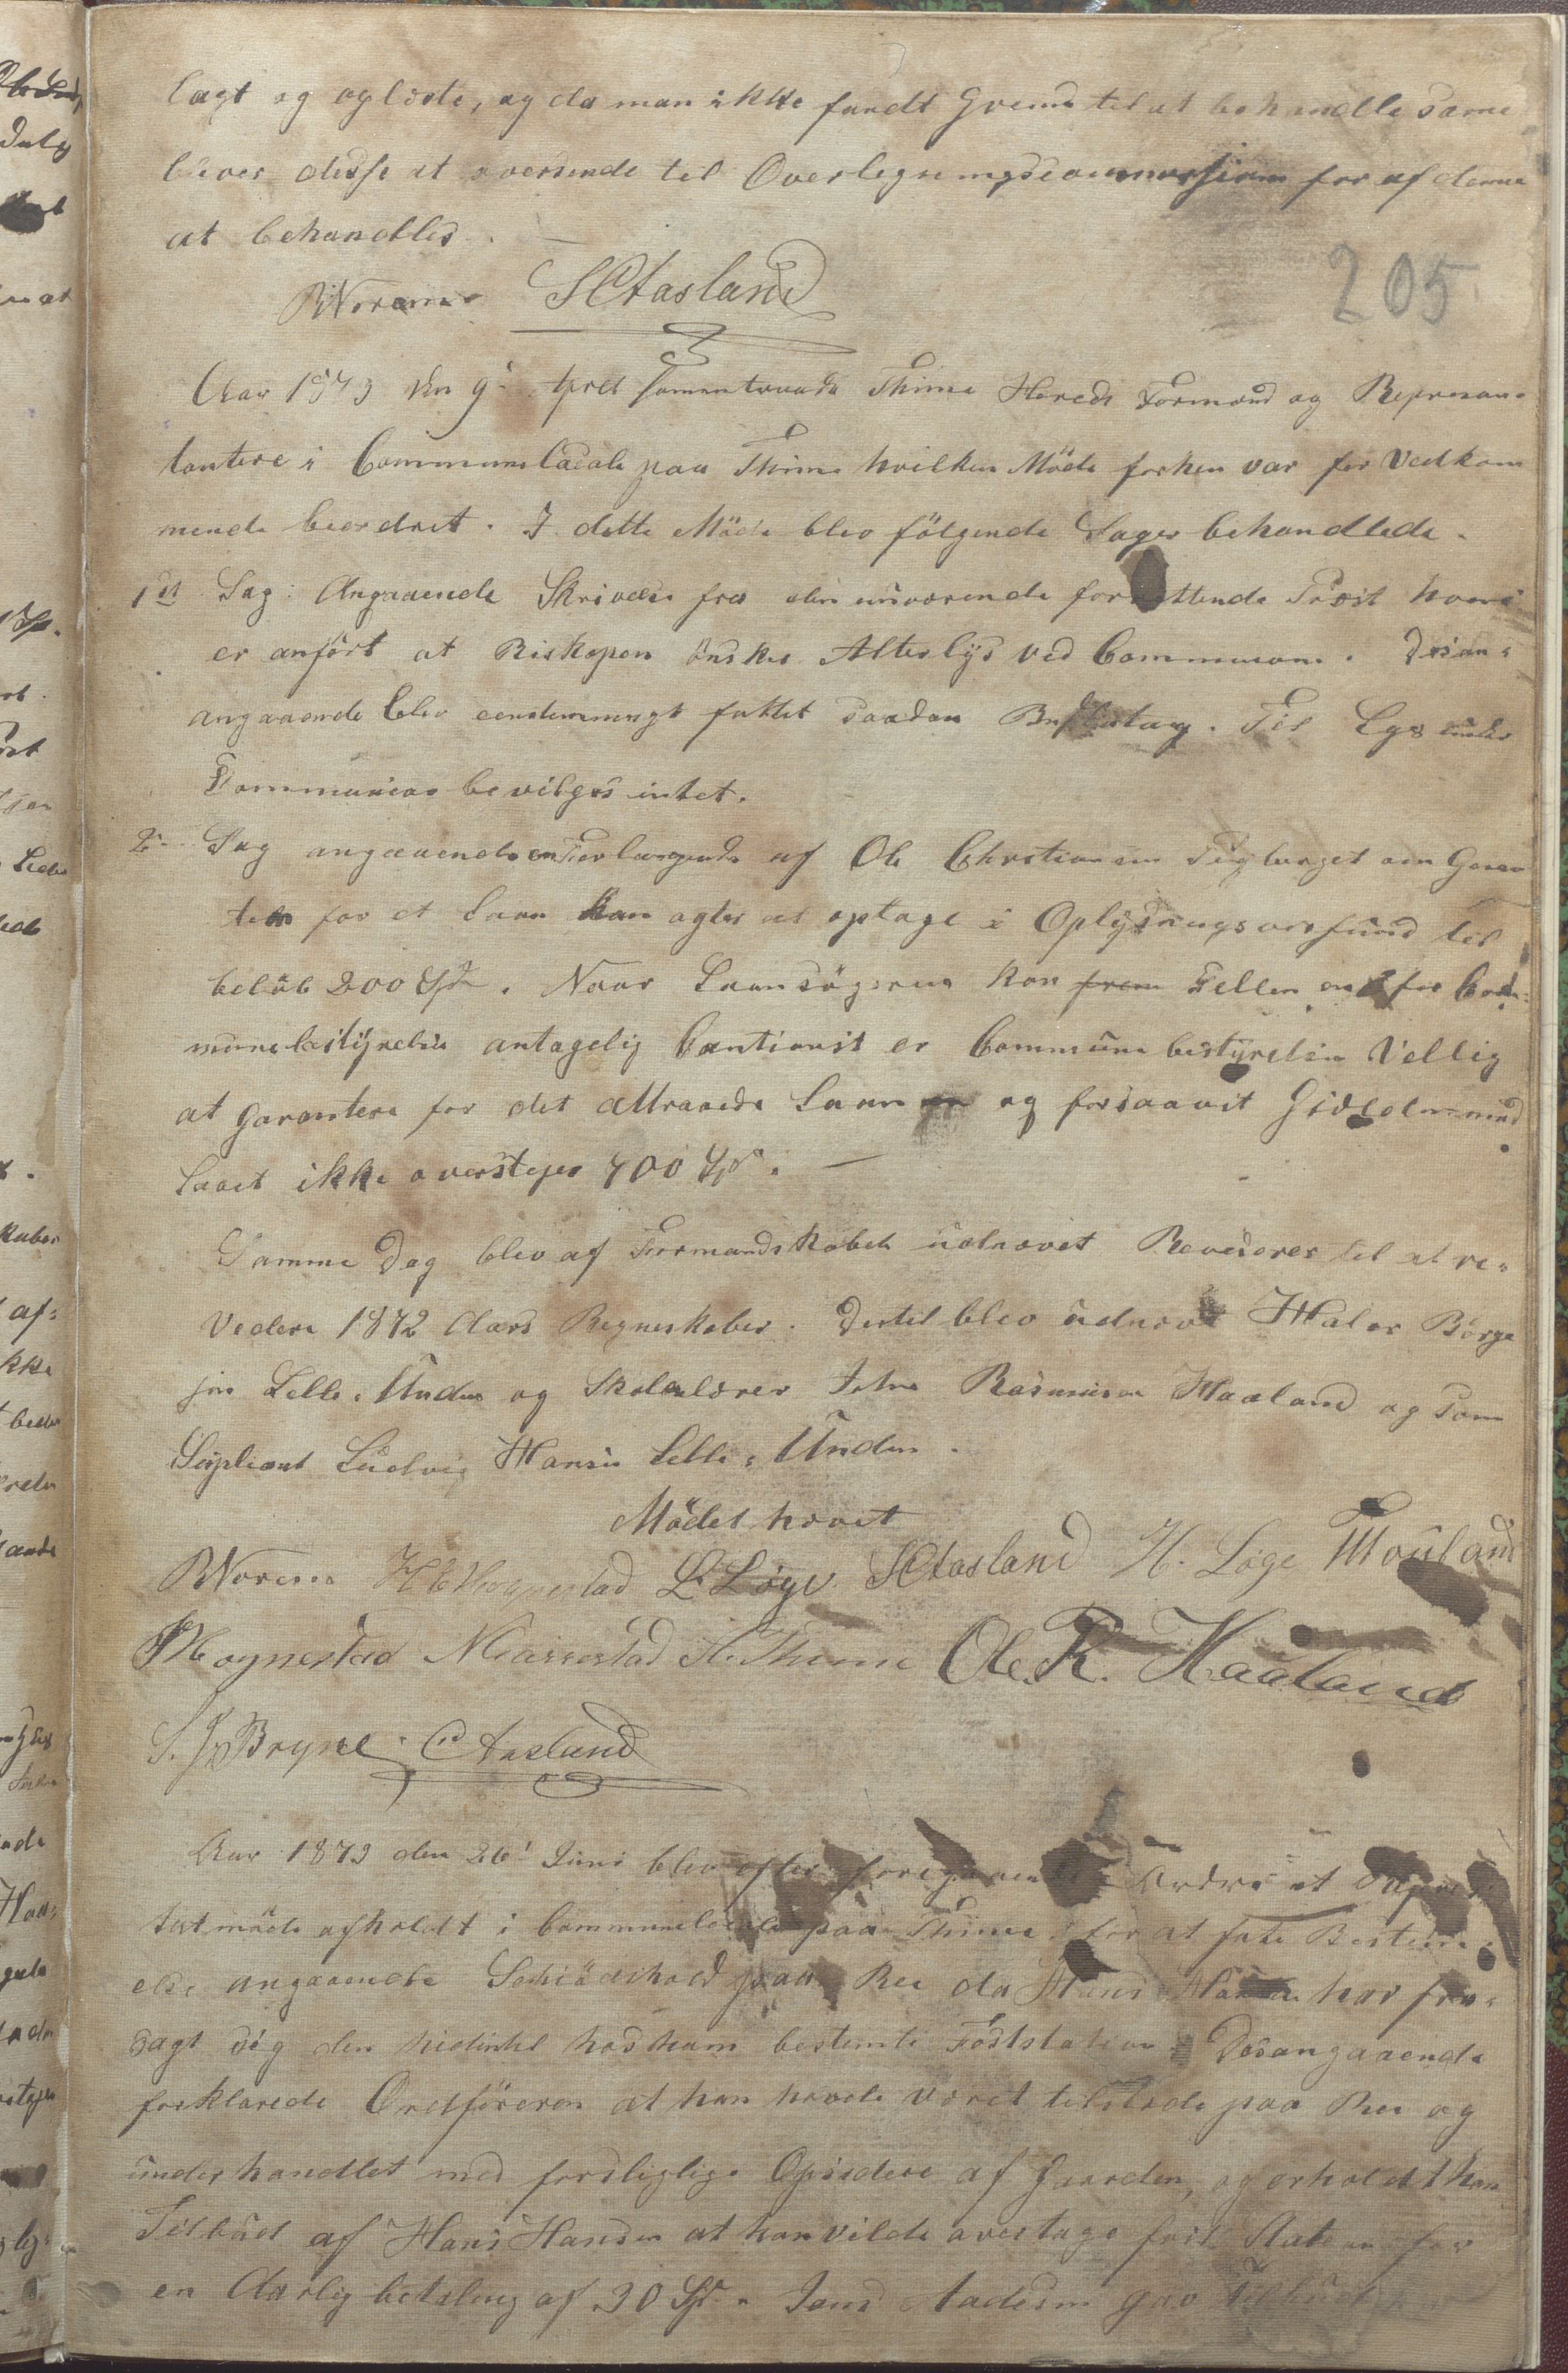 lagt og oplæste, og da man ikke fandt Grund til at behandle same
blever disse at oversende til Overlegningscommissionen for af denne
at behandles. —
RNorem SCAasland
205
Aar 1873 den 9de April samentraade Thime Hereds Formænd og Represan-
tantere i Communelocale paa Thime hvilken Möde forhen var for Vedkom
mende beordret. I dette Möde blev fölgende Sager behandlede.
1ste Sag: Angaaende Skrivelse fra den nuværende forrettende Præst hvori
er anfört at Biskopen önsker Alterlys ved Communion. Desan-
angaaende blev eenstemmigt fattet saadan Beslutning. Til Lys under
Communion beviliges intet.
2. Sag angaaende en Forlangende af Ole Christiansen Tuglarget om Garan
tie for et Laan han agter at optage i Oplysningsvæsfund til
belöb 200 Spd. Naar Laansögeren kan stellen en for Com-
munebestyrelsen antagelig Cautionist er Communebestyrelsen Vellig
at Garantere for det attraaede Laan og forsaavit
Laaet ikke overstiger 400 Spd. —
Samme Dag blev af Formandskabet udnævnt Revisorer til at re-
vedere 1872 Aars Regneskaber. Dertil blev udnævnt Maler Börge
sen Lelle-Undem og Skolelærer John Rasmusen Haaland og som
Supleant Ludvig Hansen Lelle-Undem.
Mödet hævet
RNorem H C Hognestad L Löge SCAasland H. Löge T Houland
Hognestad N Garrestad H. Thime Ole. R. Haaland
S. J. Bryne C Aasland
Aar 1873 den 26' Juni blev efter foregaaende Ordre et
tatmöde afholdt i Communelocale paa Thime for at fate Bestem-
else angaaende Schiödshold paa Ree da Hans Hansen har fra-
sagt sig den hidintil hos ham bestemte Faststation. Desangaaende
forklarede Ordföreren at han havde været tilstede paa Ree og
underhandlet med forsliglige Opsidere af Gaarden, og erholdt han
Tilbud af Hans Hansen at han vilde overtage fast Station for
en Aarlig betaling af 30 Spd. Jens Aadesen gav Tilbud